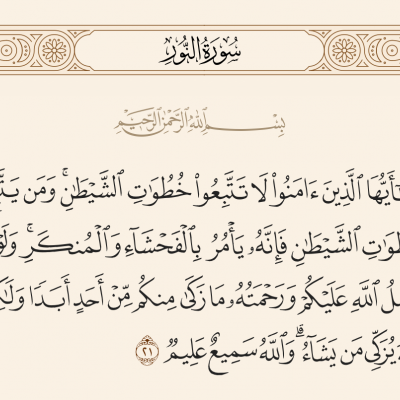 سُورَةُ النُّورِ
بِسْمِ ٱللَّهِ ٱلرَّحْمَٰنِ ٱلرَّحِيمِ
ٱلَّذِينَ ءَامَنُوا۟ لَا تَتَّبِعُوا۟ خُطُوَٰتِ ٱلشَّيْطَٰنِ ۚ وَمَن
ٱلشَّيْطَٰنِ فَإِنَّهُۥ يَأْمُرُ بِٱلْفَحْشَآءِ وَٱلْمُنكَرِ ۚ
ٱللَّهِ عَلَيْكُمْ وَرَحْمَتُهُۥ مَا زَكَىٰ مِنكُم مِّنْ أَحَدٍ أَبَدًا
يُزَكِّى مَن يَشَآءُ ۗ وَٱللَّهُ سَمِيعٌ عَلِيمٌ ٢١